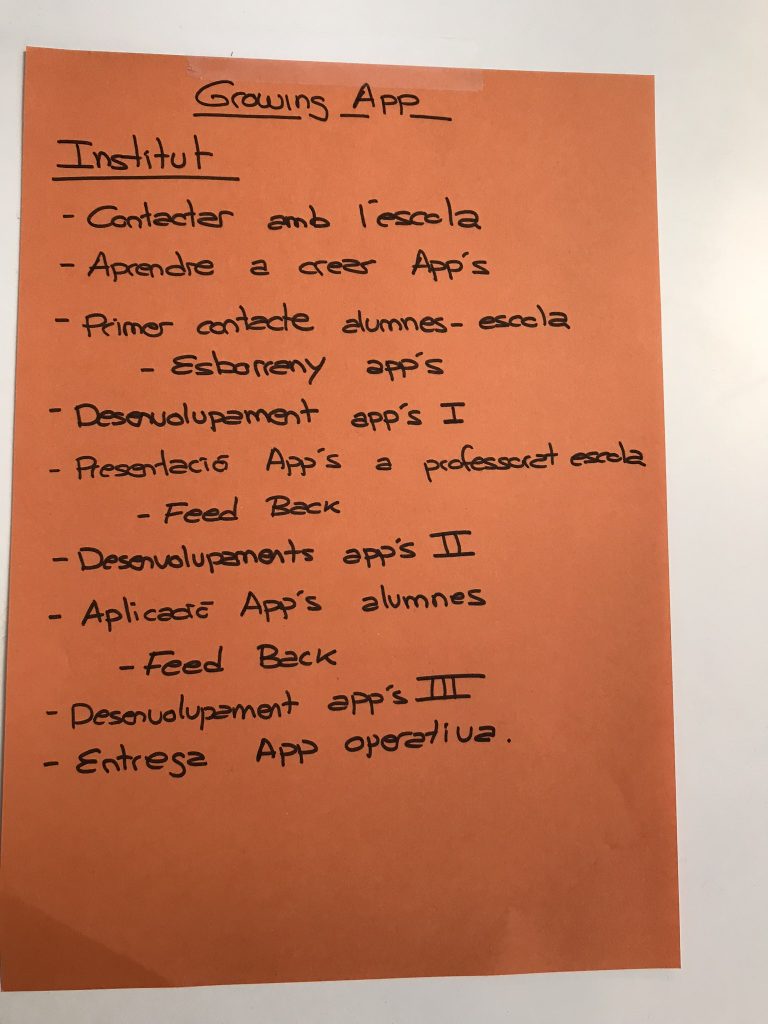 Growing App
Institut
- Contactar amb l'escola
- Aprendre a crear App's
- Primer contacte alumnes- escola
- Esborreny app's
- Desenvolupament app's I
- Presentació App's a professorat escola
- Feed Back
- Desenvolupaments app's II
- Aplicació App's alumnes
- Feed Back
- Desenvolupament app's III
- Entrega App operativa.